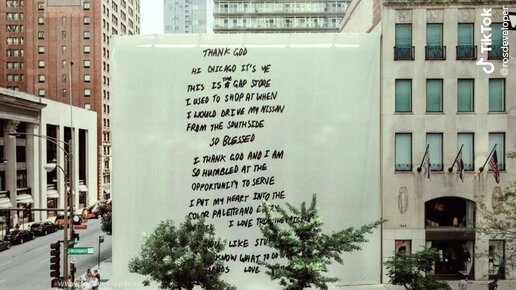 THANK GOD
HI CHICAGO IT'S YE
THIS IS THE GAP STORE
I USED TO SHOP AT WHEN
I WOULD DRIVE MY NISSAN
FROM THE SOUTHSIDE
SO BLESSED
I THANK GOD AND I AM
SO HUMBLED AT THE
OPPORTUNITY TO SERVE
I PUT MY HEART INTO THE
COLOR PALETTE AND
I LOVE
LIKE
KNOW WHAT TO DO
LOVE
TikTok
@rosdeveloper